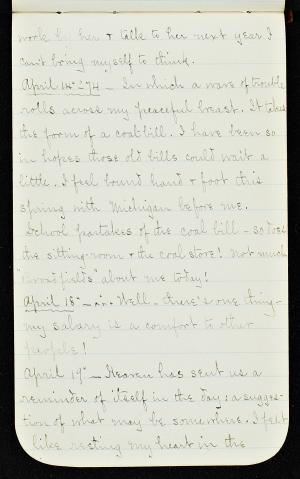 work by her & talk to her next year I
can't bring myself to think.
April 14" '74 – In which a wave of trouble
rolls across my peaceful breast. It takes
the form of a coal bill. I have been so
in hopes those old bills could wait a
little. I feel bound hand & foot this
spring with Michigan before me.
School partakes of the coal bill – so does
the sitting-room & the coal store! Not much
"broad fields" about me today!
April 18" – Well – there's one thing –
my salary is a comfort to other
people!
April 19" – Heaven has sent us a
reminder of itself in the day: a sugges-
tion of what may be somewhere. I feel
like resting my heart in the